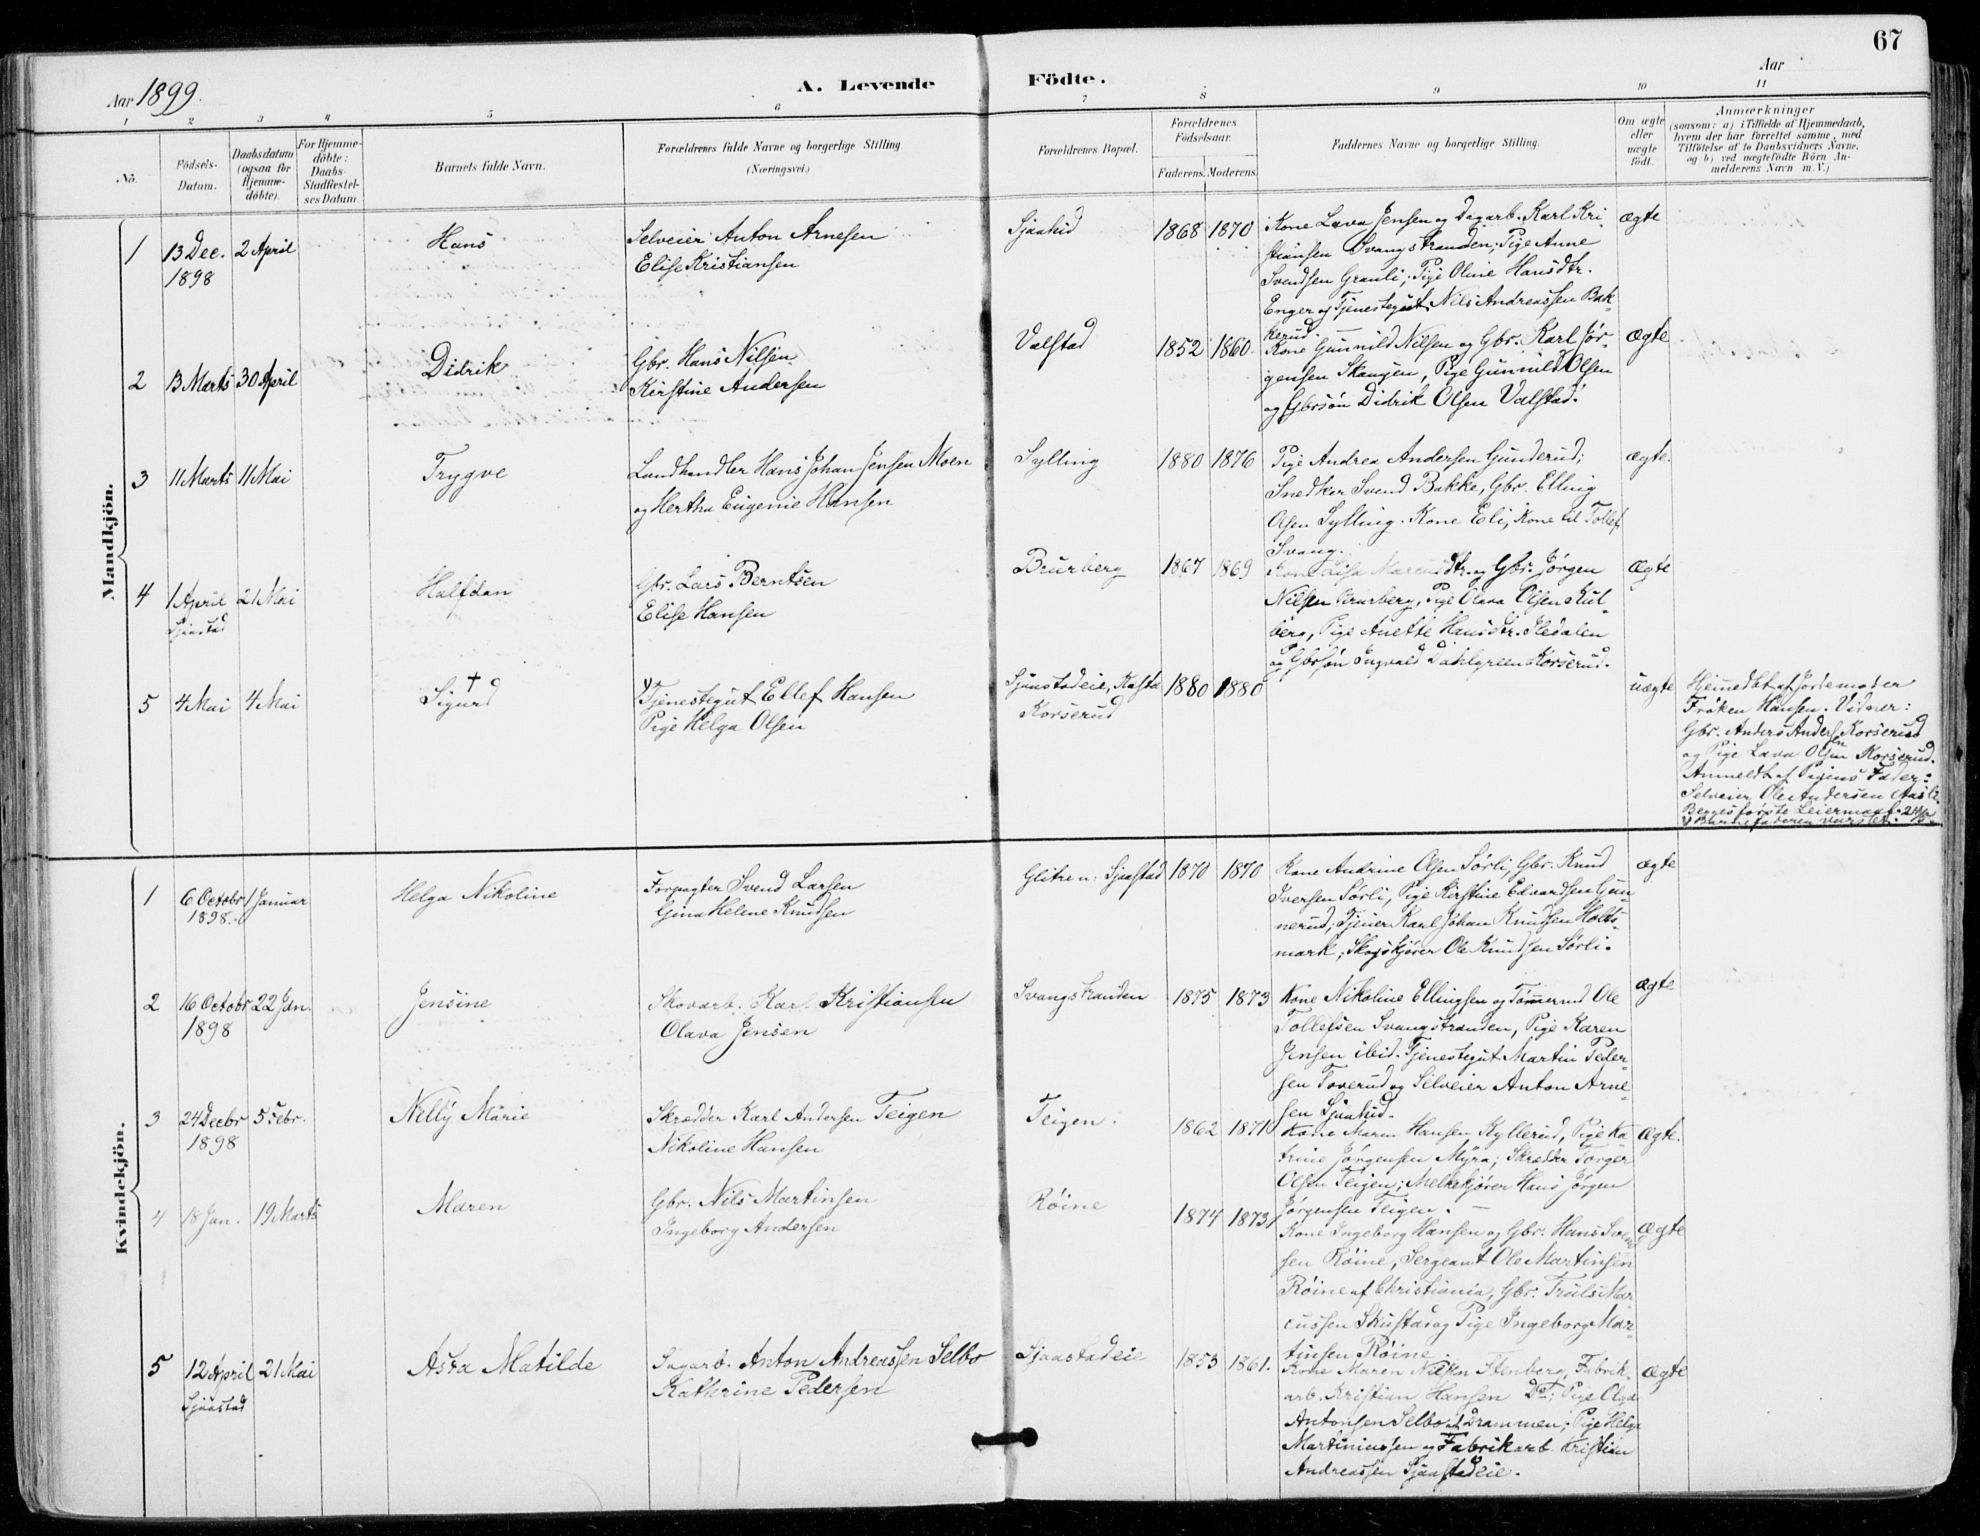 67
Aar 1899.
A. Levende Födte.
Aar
1 2 3 4 5 6 7 8 9 10 11
No.
Födsels-
Datum.
Daabsdatum
(ogsaa for
Hjemme-
döbte).
For Hjemme-
döbte:
Daabs-
Stadfæstel-
ses Datum.
Barnets fulde Navn.
Forældrenes fulde Navne og borgerlige Stilling
(Næringsvei.)
Forældrenes Bopæl.
Forældrenes
Födselsaar.
Faderens. Moderens.
Faddernes Navne og borgerlige Stilling.
Om ægte
eller
uægte
födt.
Anmærkninger
(saasom: a) i Tilfælde af Hjemmedaab,
hvem der har forrettet samme, med
Tilföielse af to Daabsvidners Navne,
og b) ved uægtefödte Börn An-
melderens Navn m. V.)
Mandkjön.
1
13 Dec.
1898
2 April
Hans
Selveier Anton Arnesen
Elise Kristiansen
Sjaahid
1868 1870
Kone Lava Jensen og Dagarb. Karl Kri-
stiansen Svangstranden; Pige Anne
Svendsen Granli; Pige Oline Hansdtr.
Enger og Tjenestegut Nils Andreassen Bak-
kerud
ægte
2
13 Marts
30 April
Didrik
Gbr. Hans Nilsen
Kirstine Andersen
Valstad
1852 1860
Kone Gunnild Nilsen og Gbr. Karl Jör-
gensen Skaugen, Pige Gunnild Olsen
og Gbrsön Didrik Olsen Valstad.
ægte
3
11 Marts
11 Mai
Trygve
Landhandler Hans Johan Jensen Moen
og Hertha Eugenie Hansen
Sylling
1880 1876
Pige Andrea Andersen Gunderud;
Snedker Svend Bakke, Gbr. Elling
Olsen Sylling. Kone Eli, Kone til Tollef
Svang.
ægte.
4
1 April
Sjaastad
21 Mai
Halfdan
Gbr. Lars Berntsen
Elise Hansen
Brurberg
1867 1869
Kone Lisa dtr. og Gbr. Jörgen
Nilsen Brurberg, Pige Olava Olsen Kul-
berg, Pige Anette Hansdtr.
og Gbrsön Ingvald Dahlgreen Korserud.
ægte
5
4 Mai
4 Mai
†
Sigurd
Tjenestegut Ellef Hansen
Pige Helga Olsen
Sjaastadeie,
Korserud
1880 1880
uægte
Hjemedbt af Jordemoder
Fröken Hansen. Vidner:
Gbr. Anders Andersen Korserud
og Pige Lava Olsen Korserud.
Anmeldt af Pigens Fader:
Selveier Ole Andersen
Begges förste Leiermaal.
Kvindekjön.
1
6 Octobr
1898.
1 Januar
Helga Nikoline
Forpagter Svend Larsen
Gina Helene Knudsen
Glitre u: Sjaastad
1870 1870
Kone Andrine Olsen Sörli, Gbr. Knud
Iversen Sörli, Pige Kirstine Edvardsen Gun-
nerud; Tjener Karl Johan Knudsen Holts-
mark; Skogskjörer Ole Knudsen Sörli.
ægte
2
16 Octobr
1898
22 Jan.
Jensine
Skovarb. Karl Kristiansen
Olava Jensen
Svangstranden
1875 1873
Kone Nikoline Ellingsen og Tömmermd Ole
Tollefsen Svangstranden, Pige Karen
Jensen ibid. Tjenestegut Martin Peder-
sen Toverud og Selveier Anton Arne-
sen Sjaahid.
ægte
3
24 Decbr
1898
5 Febr.
Nelly Marie
Skrædder Karl Andersen Teigen
Nikoline Hansen
Teigen.
1862 1871
Kone Maren Hansen Kyllerud, Pige Ka-
trine Jörgensen Myra; Skrædder Torger
Olsen Teigen; Melkekjörer Hans Jörgen
Jörgensen Teigen.
ægte.
4
18 Jan.
19 Marts
Maren
Gbr. Nils Martinsen
Ingeborg Andersen
Röine
1874 1873
Kone Ingeborg Hansen og Gbr. Hans Svend-
sen Röine, Sergeant Ole Martinsen
Röine af Christiania, Gbr. Truls Mar-
cussen Skustad og Pige Ingeborg Mar-
tinsen Röine
ægte
5
12 April
Sjaastad
21 Mai
Asta Matilde
Sagarb. Anton Andreassen Selbo
Kathrine Pedersen
Sjaastadeie
1853 1861.
Kone Maren Nilsen Stenberg, Fabrik-
arb. Kristian Hansen Do; Pige Olga
Antonsen Selbo af Drammen; Pige Helga
Martiniussen og Fabrikarb. Kristian
Andreassen Sjaastadeie.
ægte